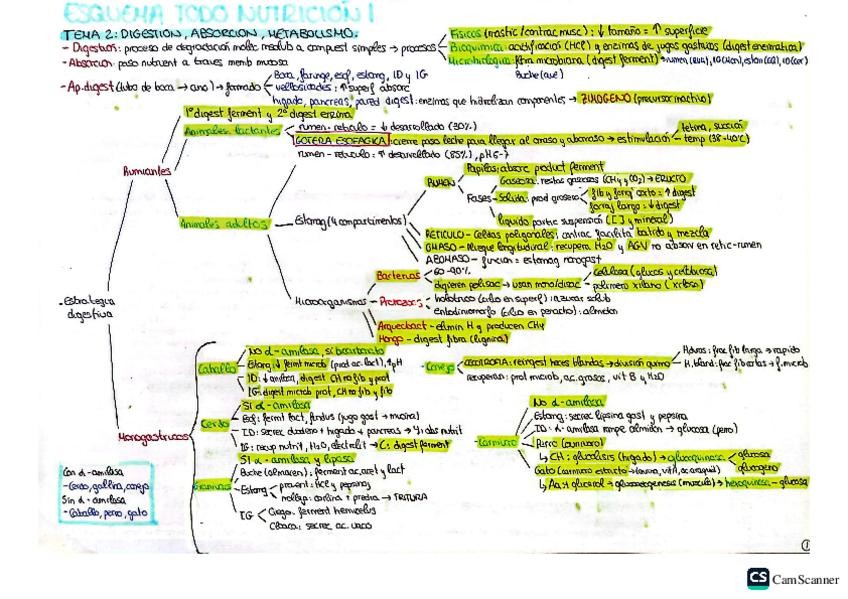 ESQUEMA TODO NUTRICIÓN I
TEMA 2: DIGESTION, ABSORCION, METABOLISMO.
- Digestión: proceso de degradación molec. no solub a compuest simples → procesos
Físicos (mastic/contrac musc): ↓ tamaño = ↑ superficie
Bioquímica: acidificación (HCl) y enzimas de jugos gástricos (digest enzimatica)
Microbiológica: flora microbiana (digest ferment) → rumen
Buche (ave)
- Absorción: paso nutrient a traves memb mucosa
- Ap. digest (tubo de boca → ano) → formado
Boca, faringe, esof, estomg, ID y IG
vellosidades: ↑ superf absorc
higado, pancreas, pared digest: enzimas que hidrolizan componentes → ZIMOGENO (precursor inactivo)
- Estrategia digestiva
Rumiantes
1º digest ferment y 2º digest enzima
Animales lactantes
rumen-reticulo = ↓ desarrollado (30%)
GOTERA ESOFAGICA: cierre paso leche para llegar al omaso y abomaso → estimulación
tetina, succión
temp (38-40ºC)
Animales adultos
rumen-reticulo: ↑ desarrollado (85%), pH 6-7
Estomag (4 compartimentos)
RUMEN
Papilas: absorc product ferment
Fases
Gaseosa: restos gaseosos (CH4 y CO2) → ERUCTO
Solida: prod grosero
fib y forraj corto = ↑ digest
forraj largo = ↓ digest
líquido: partic suspensión ([ ] y mineral)
RETICULO - Celdas poligonales: contrac facilita batido y mezcla
OMASO - Pliegue longitudinal: recupera H2O y AGV no absorv en retic-rumen
ABOMASO - función = estomag monogast
Microorganismos
Bacterias
60-90%
digieren polisac → usan mono/disac
Celulosa (glucos y celobiosa)
polimero xilano (xilosa)
Protozoos
holotrico (cilio en superf): azucar solub
entodiniomorfo (cilio en peracto): almidon
Arqueobact - elimin H y producen CH4
Hongo - digest fibra (lignina)
Monogastricos
Caballo
No α-amilasa, si bicarbonato
Estomg: ↓ ferment microb (prod ac. lact), ↑pH
ID: ↓ amilasa, digest CH no fib y prot
IG: digest microb prot, CH no fib y fib
Conejo
CECOTROFIA: reingest heces blandas → división quimo
H. duras: frac fib larga → rapido
H. bland: frac fib cortas → f. microb
recuperan: prot microb, ac. grasos, vit B y H2O
Cerdo
Si α-amilasa
Esof: ferment lact, fundus (jugo gast → mucina)
ID: secrec duodeno + higado + pancreas → Y: abs nutrit
IG: recup nutrit, H2O, electrolit → C: digest ferment
Gallinas
Si α-amilasa y lipasa
Buche (almacen): ferment ac. acet y lact
Estomg
provent: HCl y pepsinog
molleja: coilina + piedra → TRITURA
IG
Ciego: ferment hemicelus
Cloaca: secrec ac. urico
Carnivoro
No α-amilasa
Estomg: secrec lipsina gast y pepsina
ID: α-amilasa rompe almidon → glucosa (perro)
Perro (omnivoro)
↳ CH: glucolisis (higado) → glucoquinasa
glucosa
glucogeno
Gato (carnivoro estricto → taurina, vit A, ac araquid)
↳ Aa + glicerol → gluconeogenesis (musculo) → hexoquinasa - glucosa
Con α-amilasa
- Cerdo, gallina, conejo
Sin α-amilasa
- Caballo, perro, gato
1
CS CamScanner